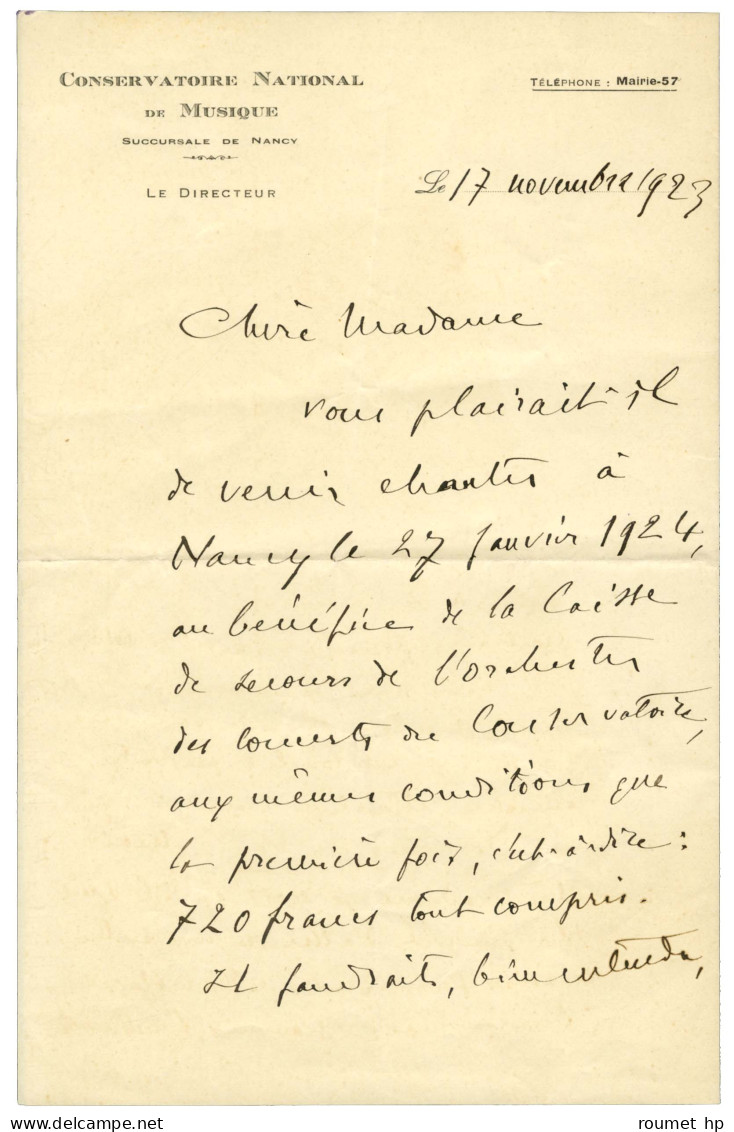 CONSERVATOIRE NATIONAL
DE MUSIQUE
SUCCURSALE DE NANCY
LE DIRECTEUR
TÉLÉPHONE : Mairie-57
Le 17 novembre 1923
Chère Madame
vous plairait-il
de venir chanter à
Nancy le 27 Janvier 1924,
au bénéfice de la Caisse
de secours de l'orchestre
des concerts du Conservatoire,
aux mêmes conditions que
la première fois, c'est-à-dire :
720 francs tout compris.
Il faudrait, bien entendu,
roumet hp